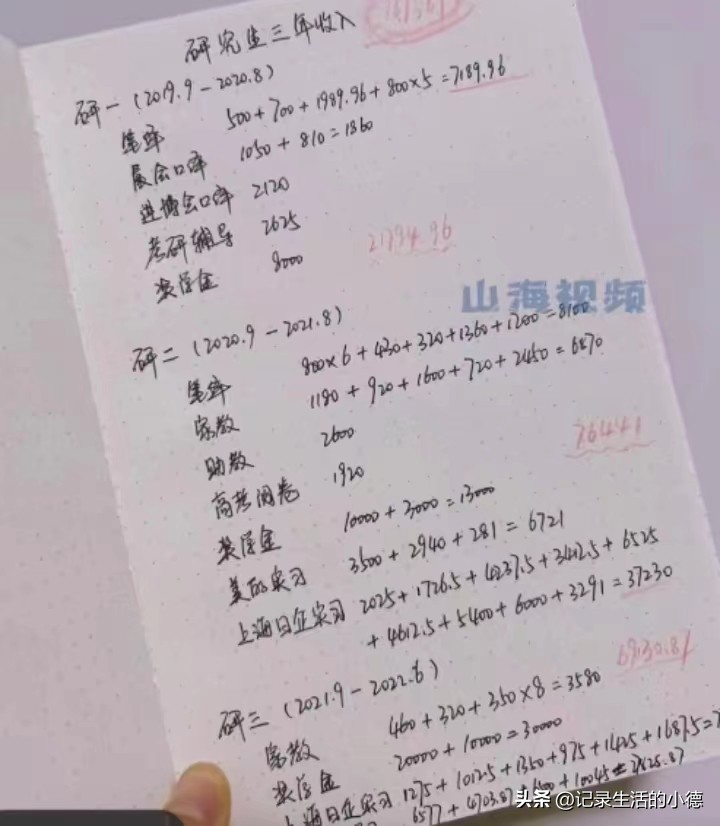 研究生三年收入
研一 (2019.9 - 2020.8)
笔译 500+700+1989.96+800×5=7189.96
展会口译 1050+810=1860
进博会口译 2120
考研辅导 2625
奖学金 8000
21794.96
山海视频
研二 (2020.9 - 2021.8)
笔译 800×6+430+320+1360+1200=8100
家教 1180+920+1600+720+2450=6870
助教 2600
高考阅卷 1920
76441
奖学金 10000+3000=13000
美的实习 3500+2940+281=6721
上海日企实习 2025+1726.5+4237.5+3412.5+6525
+4612.5+5400+6000+3291=37230
69130.87
研三 (2021.9 - 2022.6)
家教 460+320+350×8=3580
奖学金 20000+10000=30000
上海日企实习 1275+1012.5+1350+975+1425+1687.5=
头条 @记录生活的小德